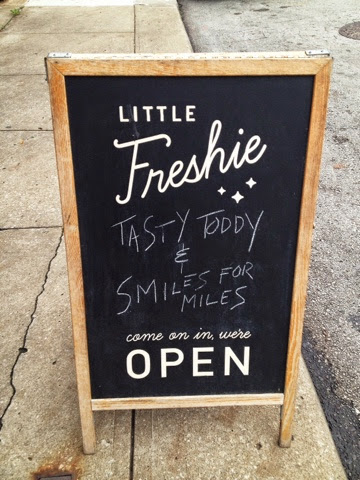 LITTLE
Freshie
TASTY TODDY
&
SMILES FOR
MILES
come on in, we're
OPEN